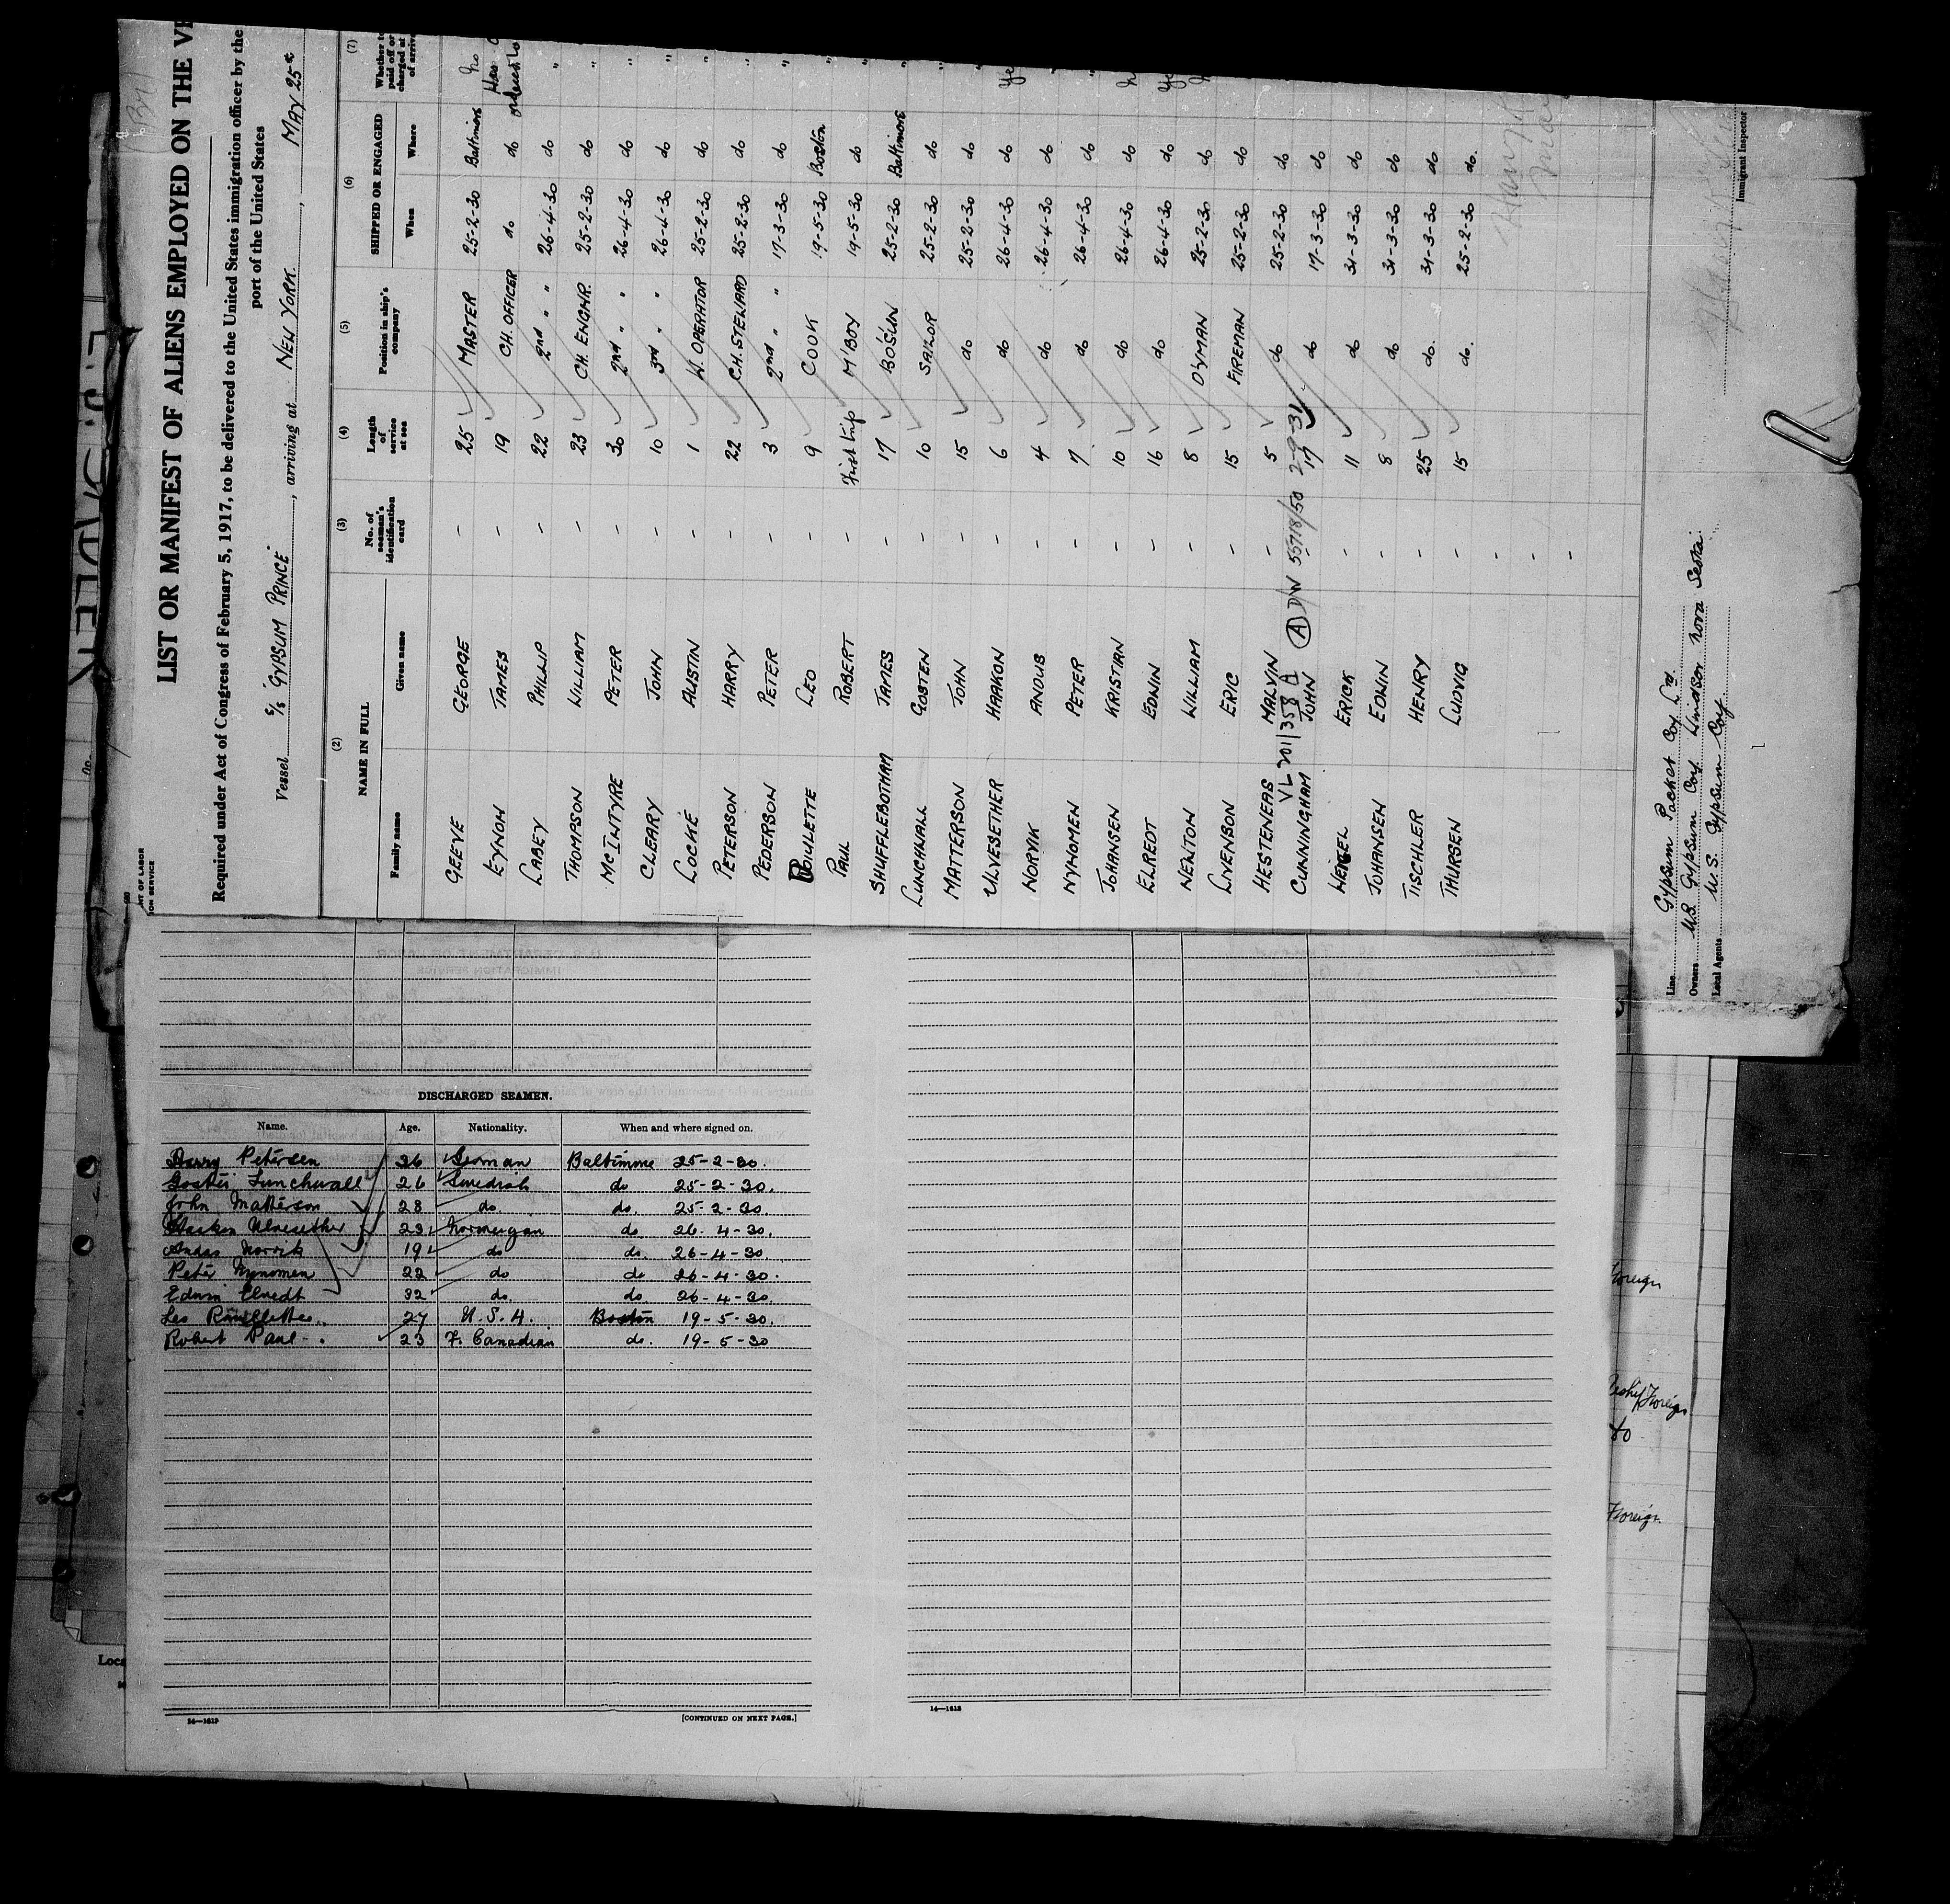 LIST OR MANIFEST OF ALIENS EMPLOYED ON THE
Required under Act of Congress of February 5, 1917, to be delivered to the United States immigration officer by the
port of the United States
Vessel S/S "GYPSUM PRINCE", arriving at NEW YORK., MAY 25th
(2) (3) (4) (5) (6) (7)
NAME IN FULL No. of seaman's identification card Length of service at sea Position in ship's company SHIPPED OR ENGAGED
Family name Given name When Where
GEEVE GEORGE - 25 MASTER 25-2-30 Baltimore No
EYNON JAMES - 19 CH. OFFICER do do
LABEY PHILIP - 22 2nd " 26-4-30 do "
THOMPSON WILLIAM - 23 CH. ENGNR. 25-2-30 do "
McINTYRE PETER - 30 2nd " 26-4-30 do "
CLEARY JOHN - 10 3rd " 26-4-30 do "
LOCKE AUSTIN - 1 W. OPERATOR 25-2-30 do "
PETERSON HARRY - 22 CH. STEWARD 25-2-30 do "
PEDERSON PETER - 3 2nd " 17-3-30 do "
ROULETTE LEO - 9 COOK 19-5-30 Boston "
PAUL ROBERT - First trip M'BOY 19-5-30 do "
SHUFFLEBOTHAM JAMES - 17 BO'SUN 25-2-30 Baltimore "
LUNCHVALL GOSTEN - 10 SAILOR 25-2-30 do "
MATTERSON JOHN - 15 do 25-2-30 do "
ULVESETHER HAAKON - 6 do 26-4-30 do
NORVIK ANDUB - 4 do 26-4-30 do "
NYNOMEN PETER - 7 do 26-4-30 do "
JOHANSEN KRISTIAN - 10 do 26-4-30 do
ELREDT EDWIN - 16 do 26-4-30 do
NEWTON WILLIAM - 8 D'YMAN 25-2-30 do
LIVENBON ERIC - 15 FIREMAN 25-2-30 do
HESTENEAS MALVIN - 5 do 25-2-30 do
VL 201/358 A (A) D/W 55718/50 2-9-31
CUNNINGHAM JOHN - 17 do 17-3-30 do
WEIGEL ERICK - 11 do 31-3-30 do
JOHANSEN EDWIN - 8 do 31-3-30 do
TISCHLER HENRY - 25 do. 31-3-30 do
THURSEN LUDVIG - 15 do. 25-2-30 do.
Line Gypsum Packet Coy Ltd.
Owners U.S. Gypsum Coy Windsor Nova Scotia.
Local Agents U.S. Gypsum Coy
Immigrant Inspector
DISCHARGED SEAMEN.
Name. Age. Nationality. When and where signed on.
Harry Petersen 36 German Baltimore 25-2-30.
Gosten Lunchvall 26 Swedish do 25-2-30.
John Matterson 28 do do. 25-2-30.
Haakon Ulvesether 23 Norwegian do 26-4-30.
Andas Norvik 19 do do. 26-4-30
Peter Nynomen 22 do do 26-4-30.
Edwin Elredt 32 do. do. 26-4-30.
Leo Roullettes 27 U.S.A. Boston 19-5-30.
Robert Paul 23 F. Canadian do. 19-5-30
14—1613 [CONTINUED ON NEXT PAGE.]
14—1613
Foreign
Foreign
do
Foreign